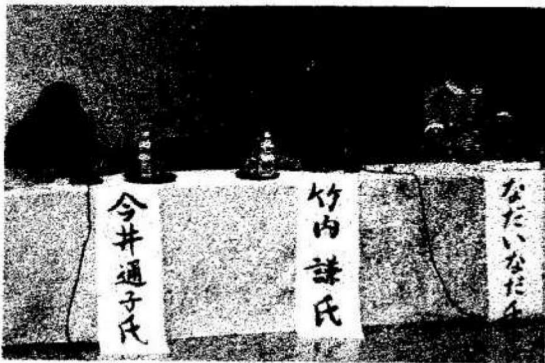 今井通子氏
竹内謙氏
なだいなだ氏